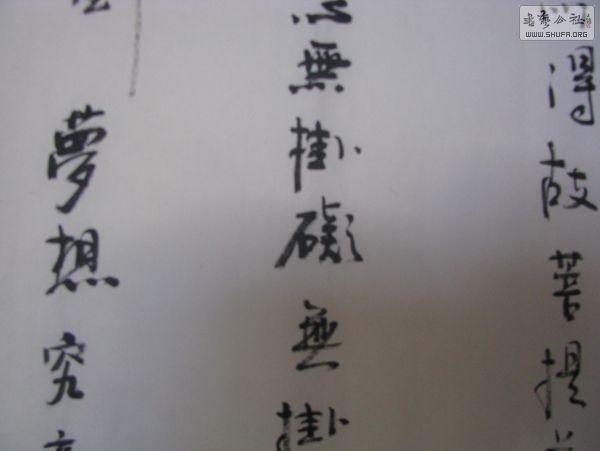 得故菩提
無掛礙無掛
夢想究
书艺公社
WWW.SHUFA.ORG